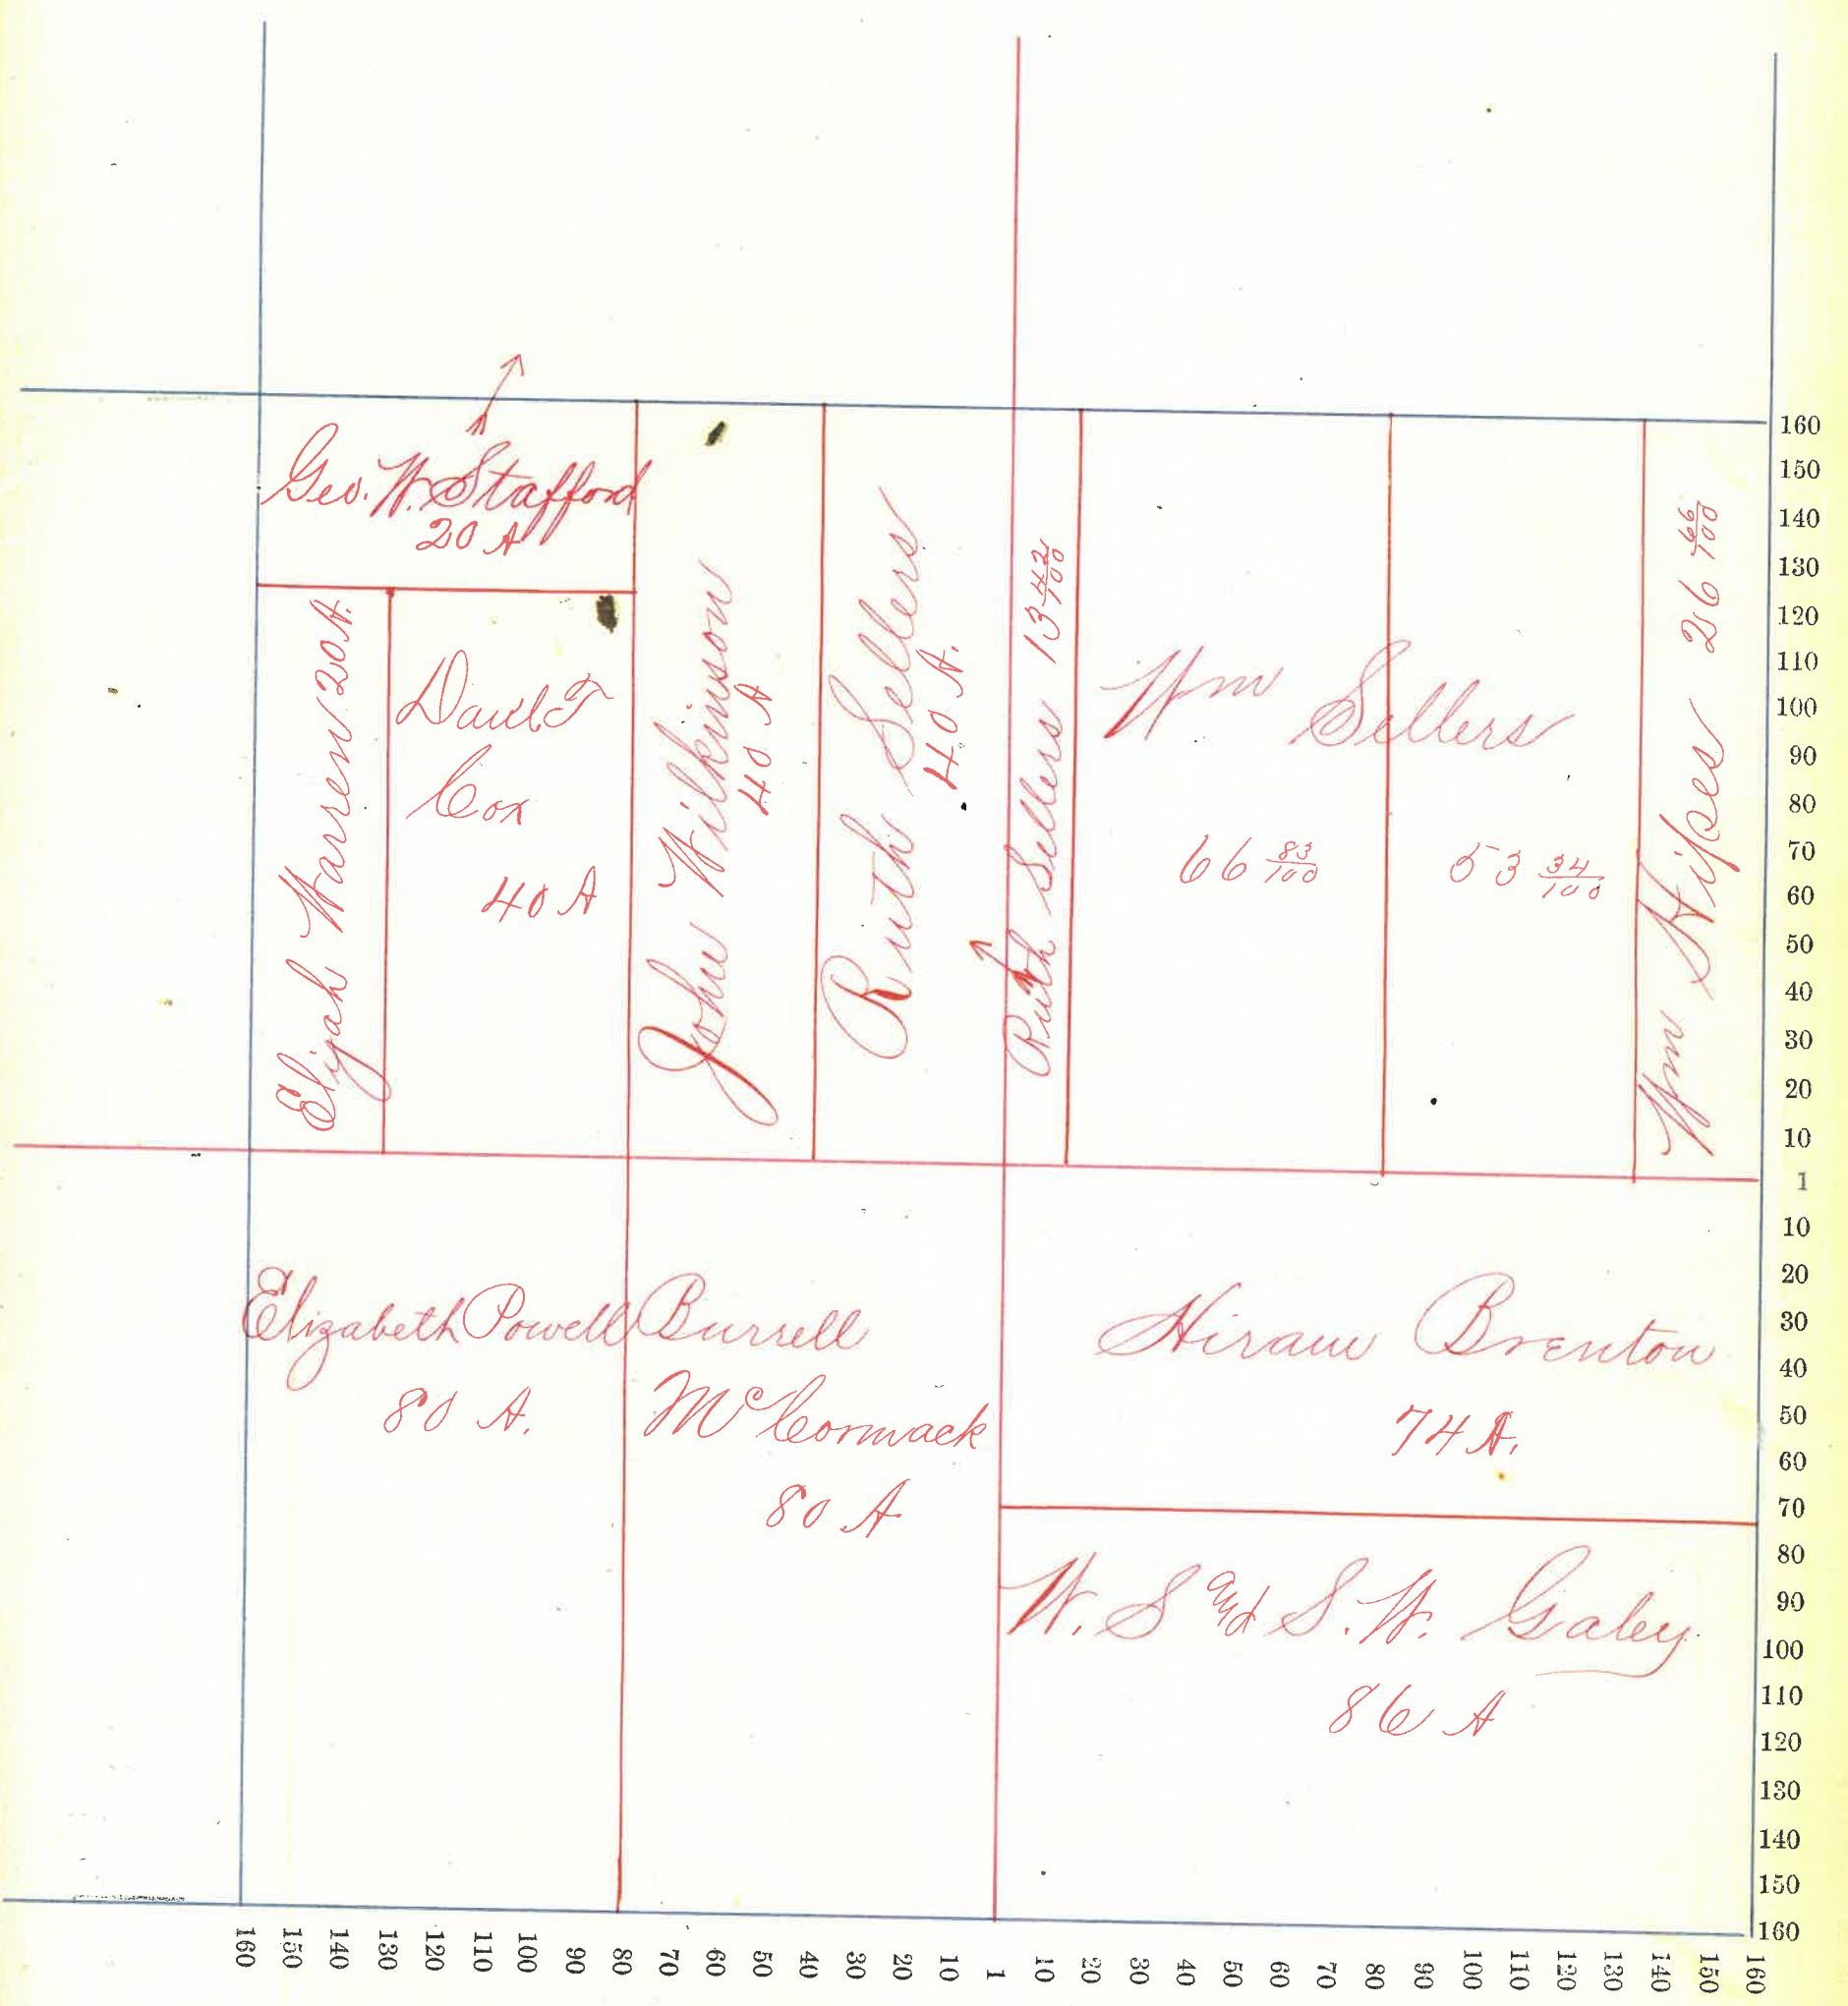 Geo. W. Stafford
20 A
Elijah Warren 20 A.
Danl. F
Cox
40 A
John Wilkinson
40 A
Ruth Sellers
40 A.
Ruth Sellers 13 42/100
Wm Sellers
66 83/100
53 34/100
Wm Hipes 26 66/100
Elizabeth Powell
80 A.
Burrell
McCormack
80 A
Hiram Brenton
74 A.
W. S and S. W. Galey
86 A
160
150
140
130
120
110
100
90
80
70
60
50
40
30
20
10
1
10
20
30
40
50
60
70
80
90
100
110
120
130
140
150
160
160 150 140 130 120 110 100 90 80 70 60 50 40 30 20 10 1 10 20 30 40 50 60 70 80 90 100 110 120 130 140 150 160